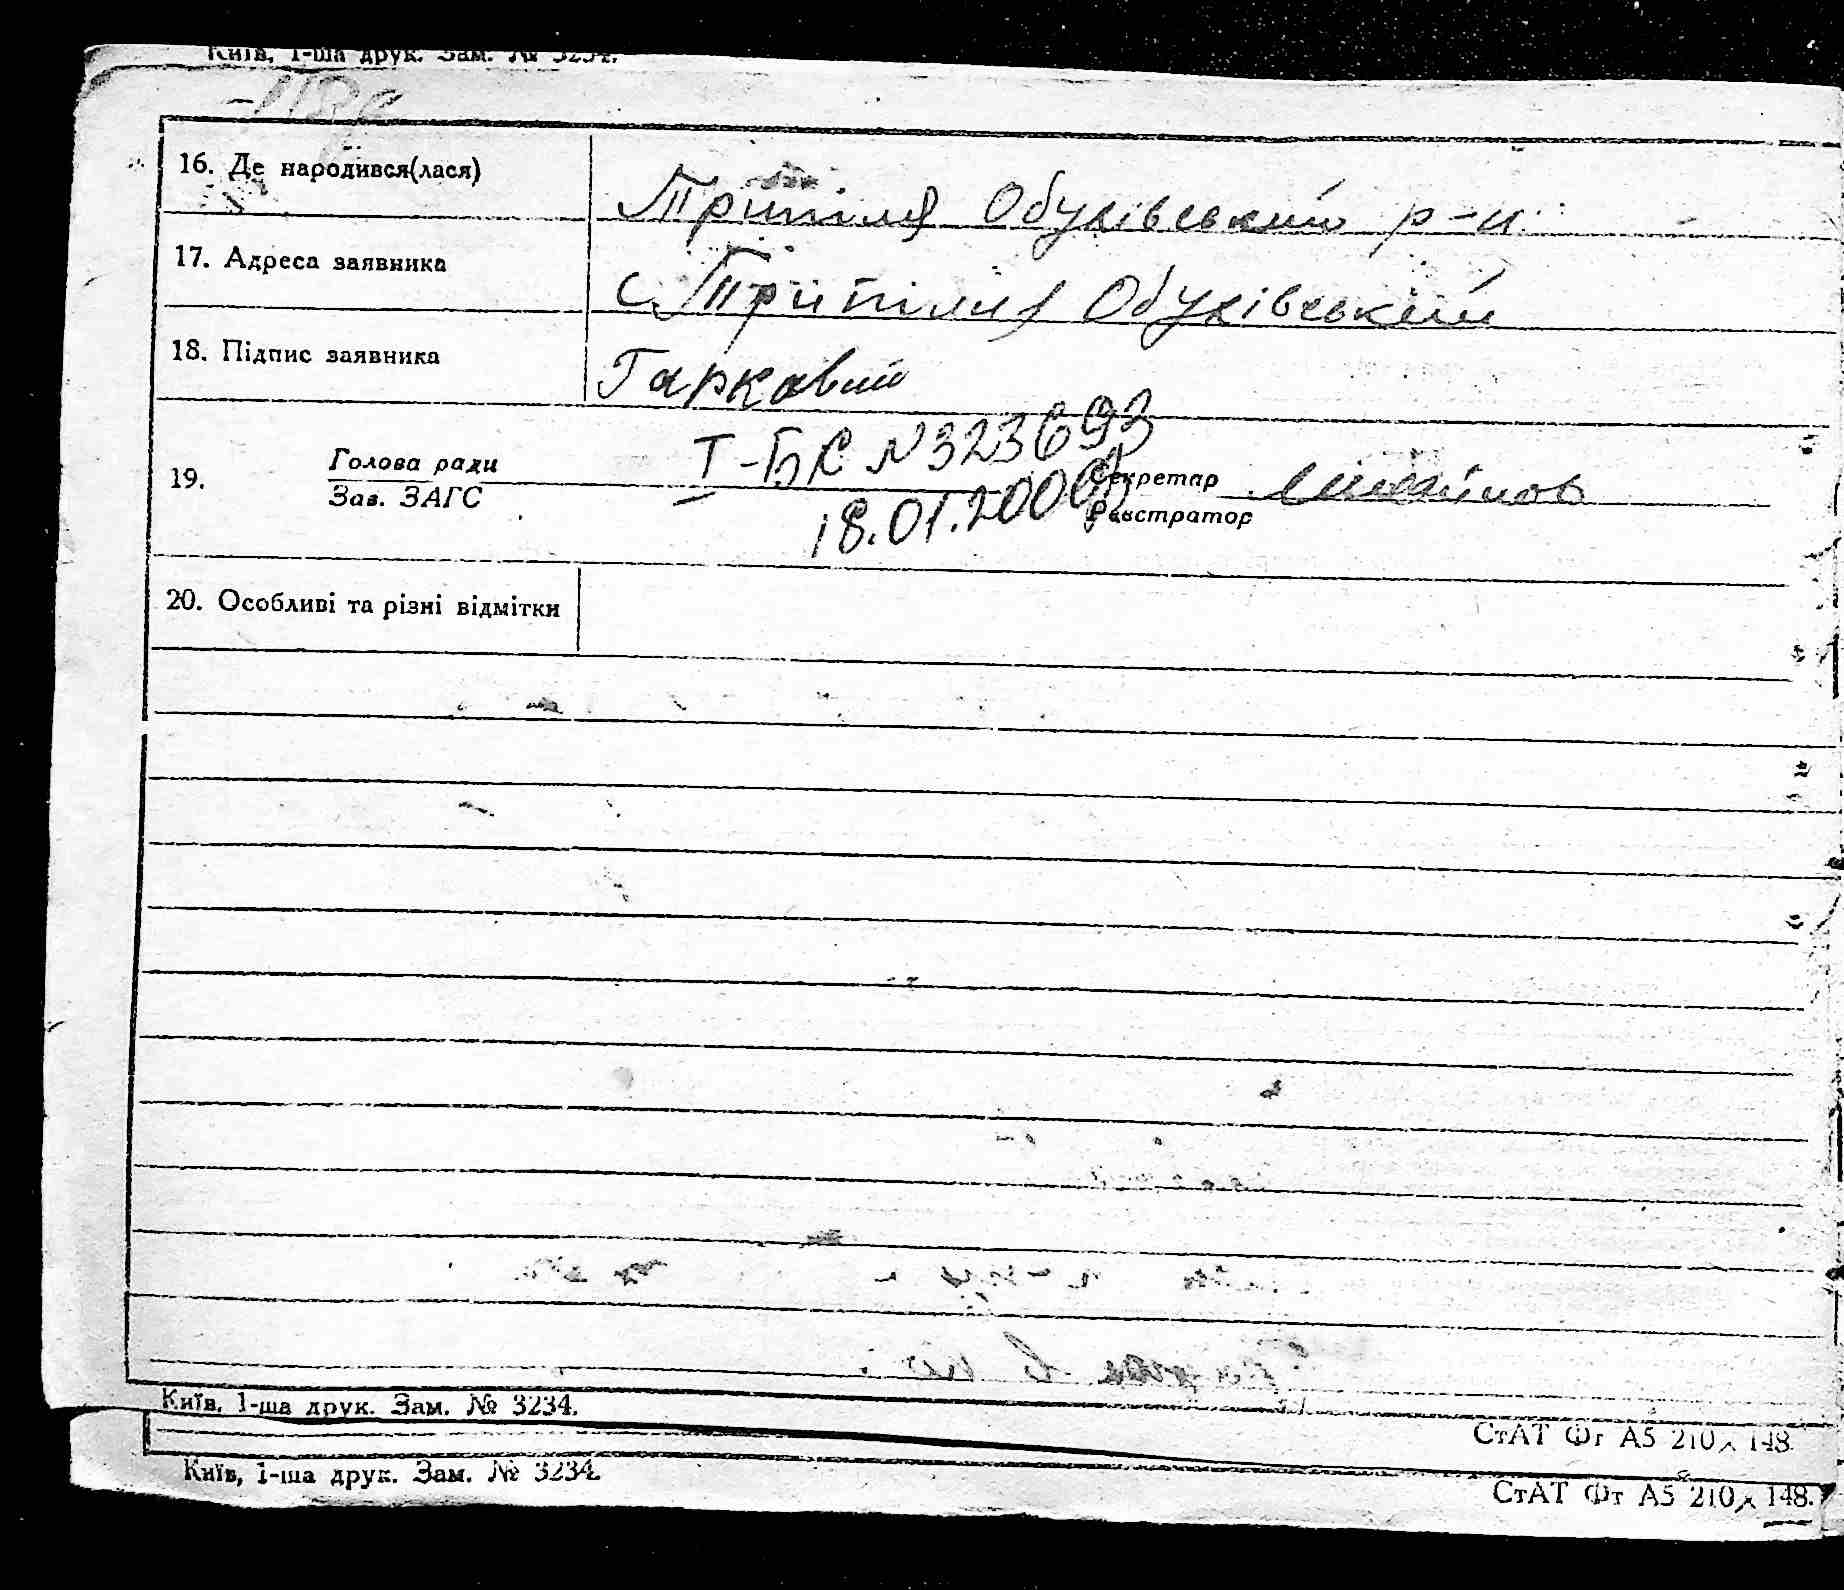 Київ, 1-ша друк. Зам. № 3234.
16. Де народився(лася)
Трипілля Обухівський р-н
17. Адреса заявника
с Трипілля Обухівський
18. Підпис заявника
Гаркавий
19. Голова ради
Зав. ЗАГС
I-БК №323693
18.01.2000р
Секретар
Реєстратор
20. Особливі та різні відмітки
Київ, 1-ша друк. Зам. № 3234.
СтАТ Фт А5 210 х 148.
Київ, 1-ша друк. Зам. № 3234.
СтАТ Фт А5 210 х 148.